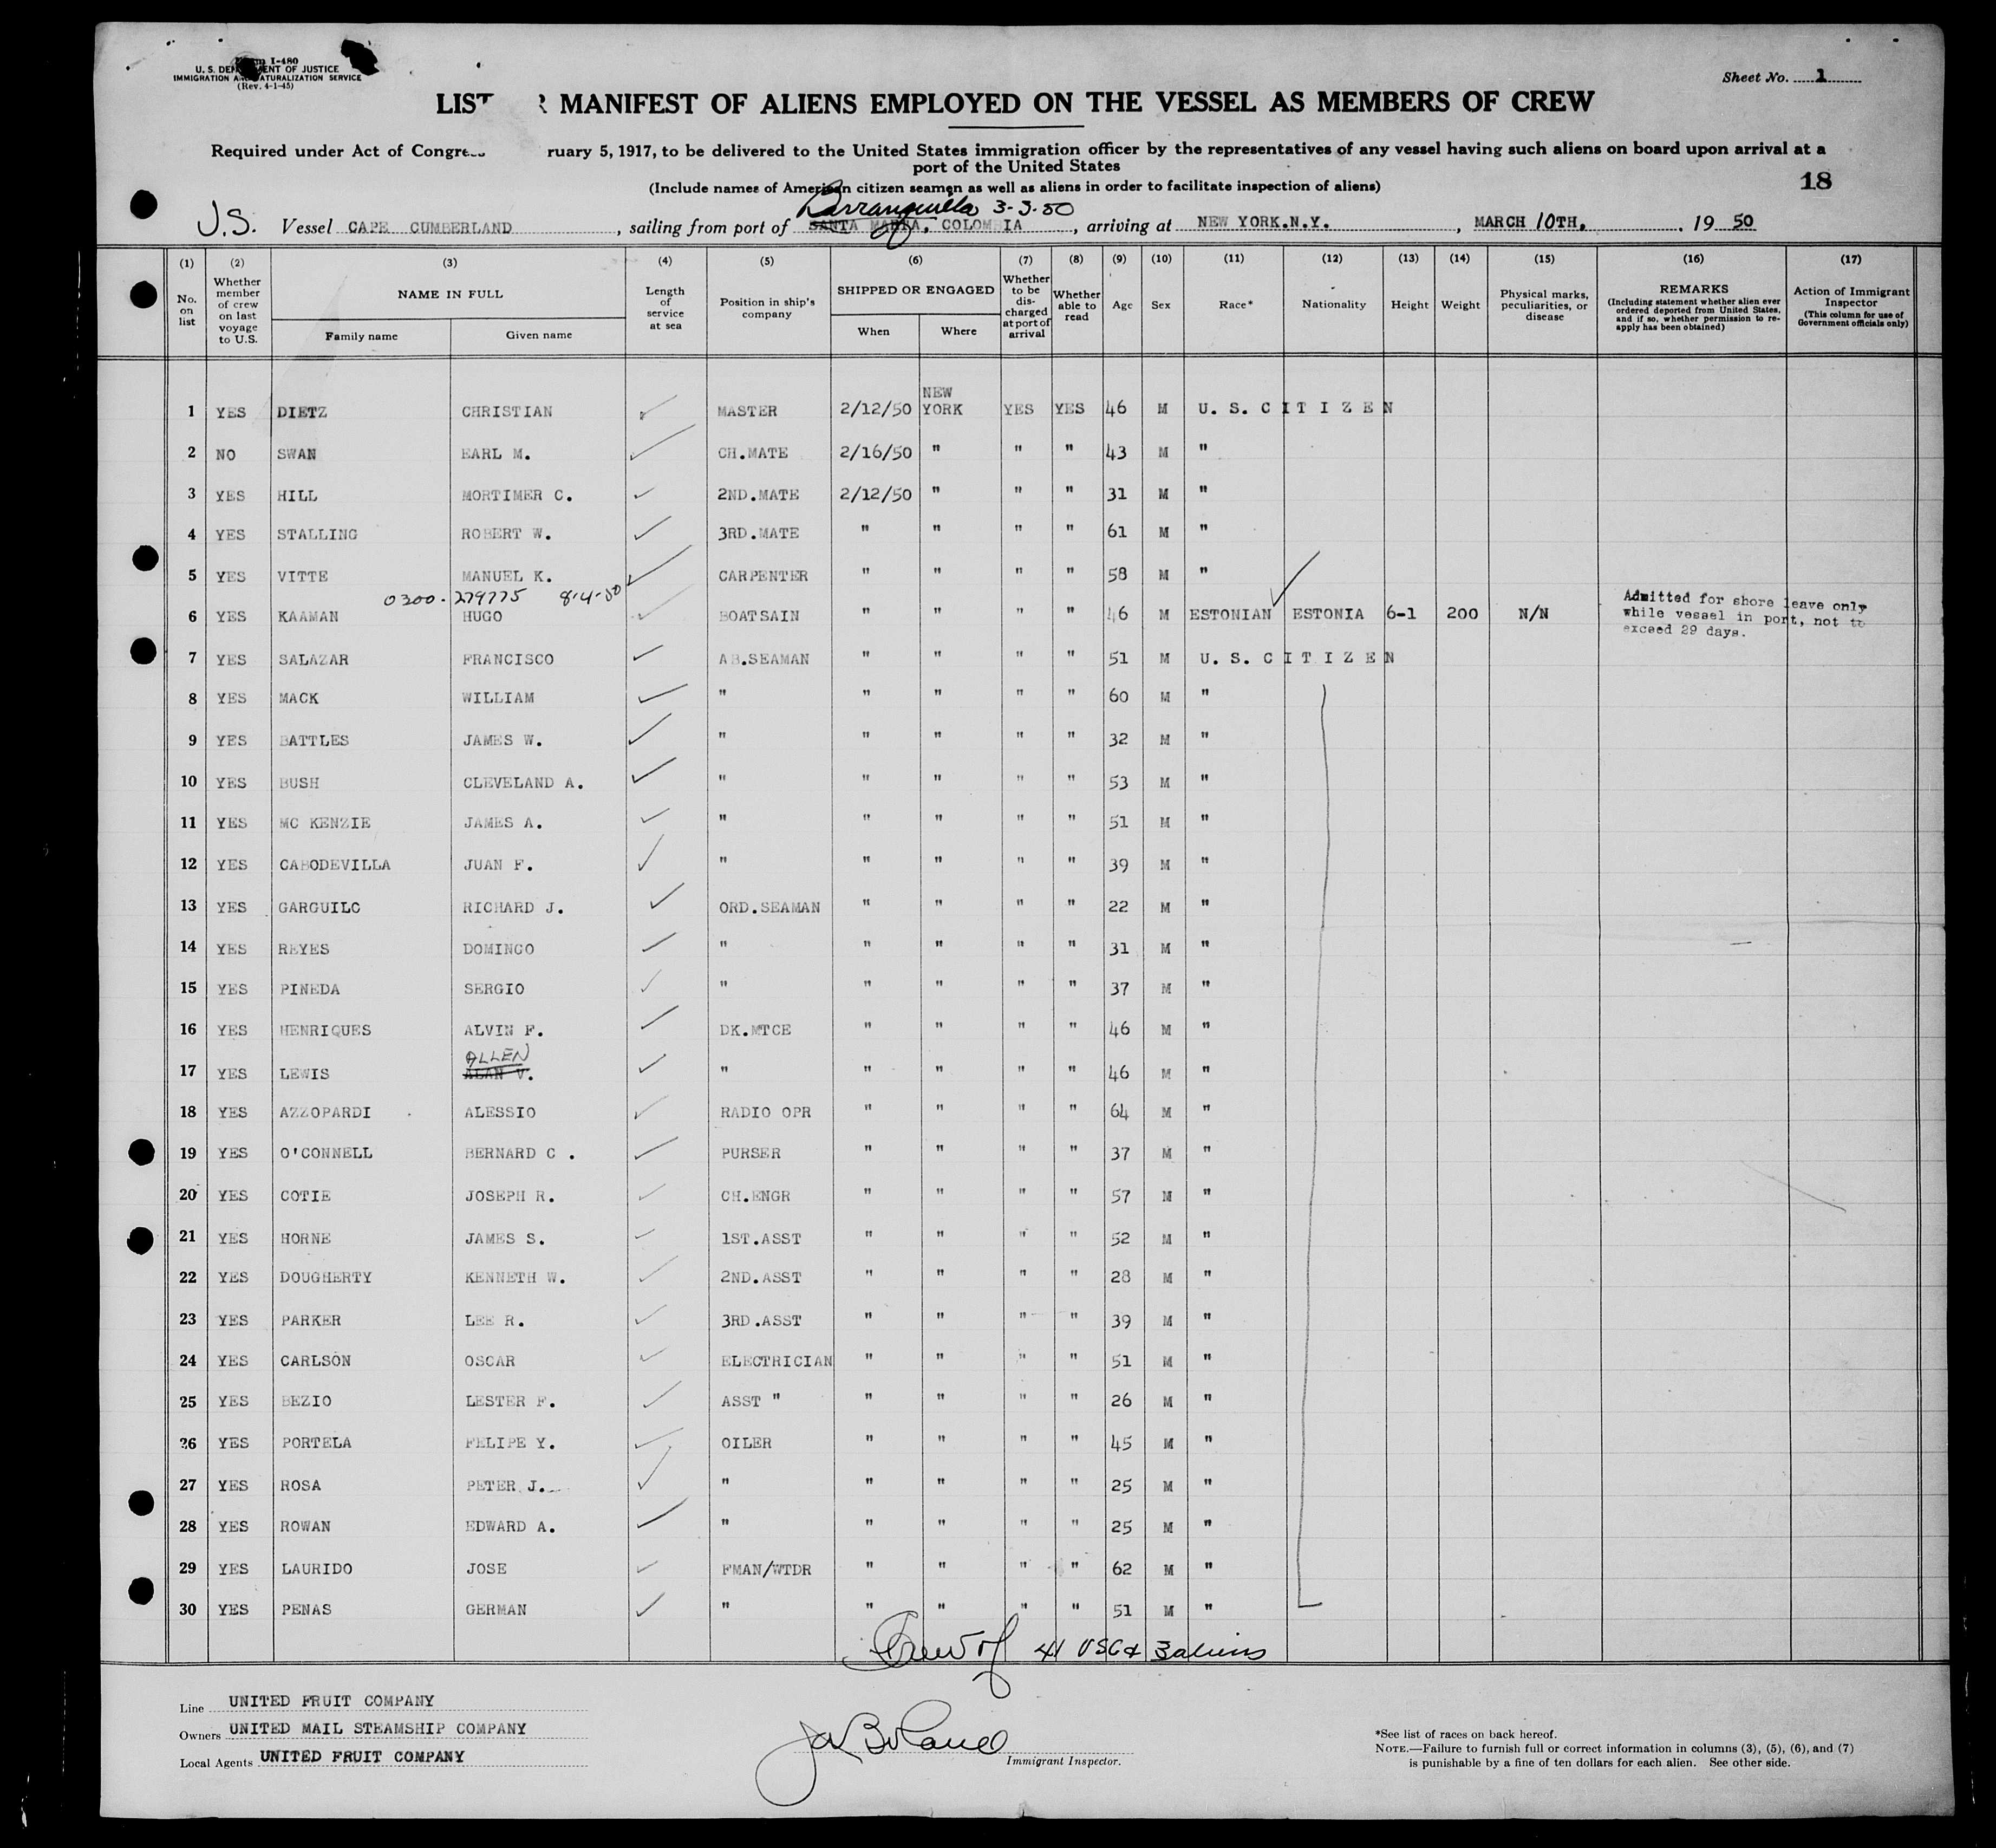 Form I-480
U. S. DEPARTMENT OF JUSTICE
IMMIGRATION AND NATURALIZATION SERVICE
(Rev. 4-1-45)
Sheet No. 1
LIST R MANIFEST OF ALIENS EMPLOYED ON THE VESSEL AS MEMBERS OF CREW
Required under Act of Congress ruary 5, 1917, to be delivered to the United States immigration officer by the representatives of any vessel having such aliens on board upon arrival at a
port of the United States
(Include names of American citizen seamen as well as aliens in order to facilitate inspection of aliens)
18
Barranquilla 3-3-50
U.S. Vessel CAPE CUMBERLAND, sailing from port of SANTA MARTA, COLOMBIA, arriving at NEW YORK.N.Y., MARCH 10TH, 19 50
(1) (2) (3) (4) (5) (6) (7) (8) (9) (10) (11) (12) (13) (14) (15) (16) (17)
No. on list
Whether member of crew on last voyage to U.S.
NAME IN FULL
Family name
Given name
Length of service at sea
Position in ship's company
SHIPPED OR ENGAGED
When
Where
Whether to be discharged at port of arrival
Whether able to read
Age
Sex
Race*
Nationality
Height
Weight
Physical marks, peculiarities, or disease
REMARKS
(Including statement whether alien ever ordered deported from United States, and if so, whether permission to reapply has been obtained)
Action of Immigrant Inspector
(This column for use of Government officials only)
1 YES DIETZ CHRISTIAN MASTER 2/12/50 NEW YORK YES YES 46 M U. S. C I T I Z E N
2 NO SWAN EARL M. CH.MATE 2/16/50 " " " 43 M "
3 YES HILL MORTIMER C. 2ND.MATE 2/12/50 " " " 31 M "
4 YES STALLING ROBERT W. 3RD.MATE " " " " 61 M "
5 YES VITTE MANUEL K. CARPENTER " " " " 58 M "
0300-279775 8-4-50
6 YES KAAMAN HUGO BOATSAIN " " " " 46 M ESTONIAN ESTONIA 6-1 200 N/N
Admitted for shore leave only
while vessel in port, not to
exceed 29 days.
7 YES SALAZAR FRANCISCO AB.SEAMAN " " " " 51 M U. S. C I T I Z E N
8 YES MACK WILLIAM " " " " " 60 M "
9 YES BATTLES JAMES W. " " " " " 32 M "
10 YES BUSH CLEVELAND A. " " " " " 53 M "
11 YES MC KENZIE JAMES A. " " " " " 51 M "
12 YES CABODEVILLA JUAN F. " " " " " 39 M "
13 YES GARGUILO RICHARD J. ORD.SEAMAN " " " " 22 M "
14 YES REYES DOMINGO " " " " " 31 M "
15 YES PINEDA SERGIO " " " " " 37 M "
16 YES HENRIQUES ALVIN F. DK.MTCE " " " " 46 M "
ALLEN
17 YES LEWIS ALAN V. " " " " " 46 M "
18 YES AZZOPARDI ALESSIO RADIO OPR " " " " 64 M "
19 YES O'CONNELL BERNARD C . PURSER " " " " 37 M "
20 YES COTIE JOSEPH R. CH.ENGR " " " " 57 M "
21 YES HORNE JAMES S. 1ST.ASST " " " " 52 M "
22 YES DOUGHERTY KENNETH W. 2ND.ASST " " " " 28 M "
23 YES PARKER LEE R. 3RD.ASST " " " " 39 M "
24 YES CARLSON OSCAR ELECTRICIAN " " " " 51 M "
25 YES BEZIO LESTER F. ASST " " " " " 26 M "
26 YES PORTELA FELIPE Y. OILER " " " " 45 M "
27 YES ROSA PETER J. " " " " " 25 M "
28 YES ROWAN EDWARD A. " " " " " 25 M "
29 YES LAURIDO JOSE FMAN/WTDR " " " " 62 M "
30 YES PENAS GERMAN " " " " " 51 M "
Crew of 41 USC & 3 aliens
Line UNITED FRUIT COMPANY
Owners UNITED MAIL STEAMSHIP COMPANY
Local Agents UNITED FRUIT COMPANY
Immigrant Inspector.
*See list of races on back hereof.
NOTE.—Failure to furnish full or correct information in columns (3), (5), (6), and (7)
is punishable by a fine of ten dollars for each alien. See other side.